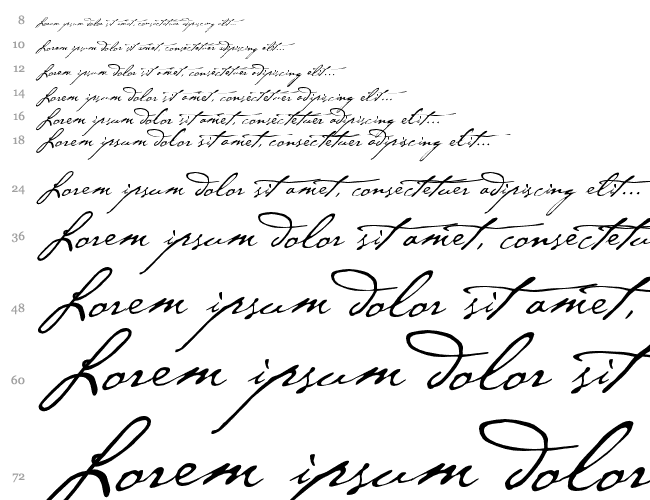 8 Lorem ipsum dolor sit amet, consectetuer adipiscing elit...
10 Lorem ipsum dolor sit amet, consectetuer adipiscing elit...
12 Lorem ipsum dolor sit amet, consectetuer adipiscing elit...
14 Lorem ipsum dolor sit amet, consectetuer adipiscing elit...
16 Lorem ipsum dolor sit amet, consectetuer adipiscing elit...
18 Lorem ipsum dolor sit amet, consectetuer adipiscing elit...
24 Lorem ipsum dolor sit amet, consectetuer adipiscing elit...
36 Lorem ipsum dolor sit amet, consectetu
48 Lorem ipsum dolor sit amet,
60 Lorem ipsum dolor sit
72 Lorem ipsum dolor